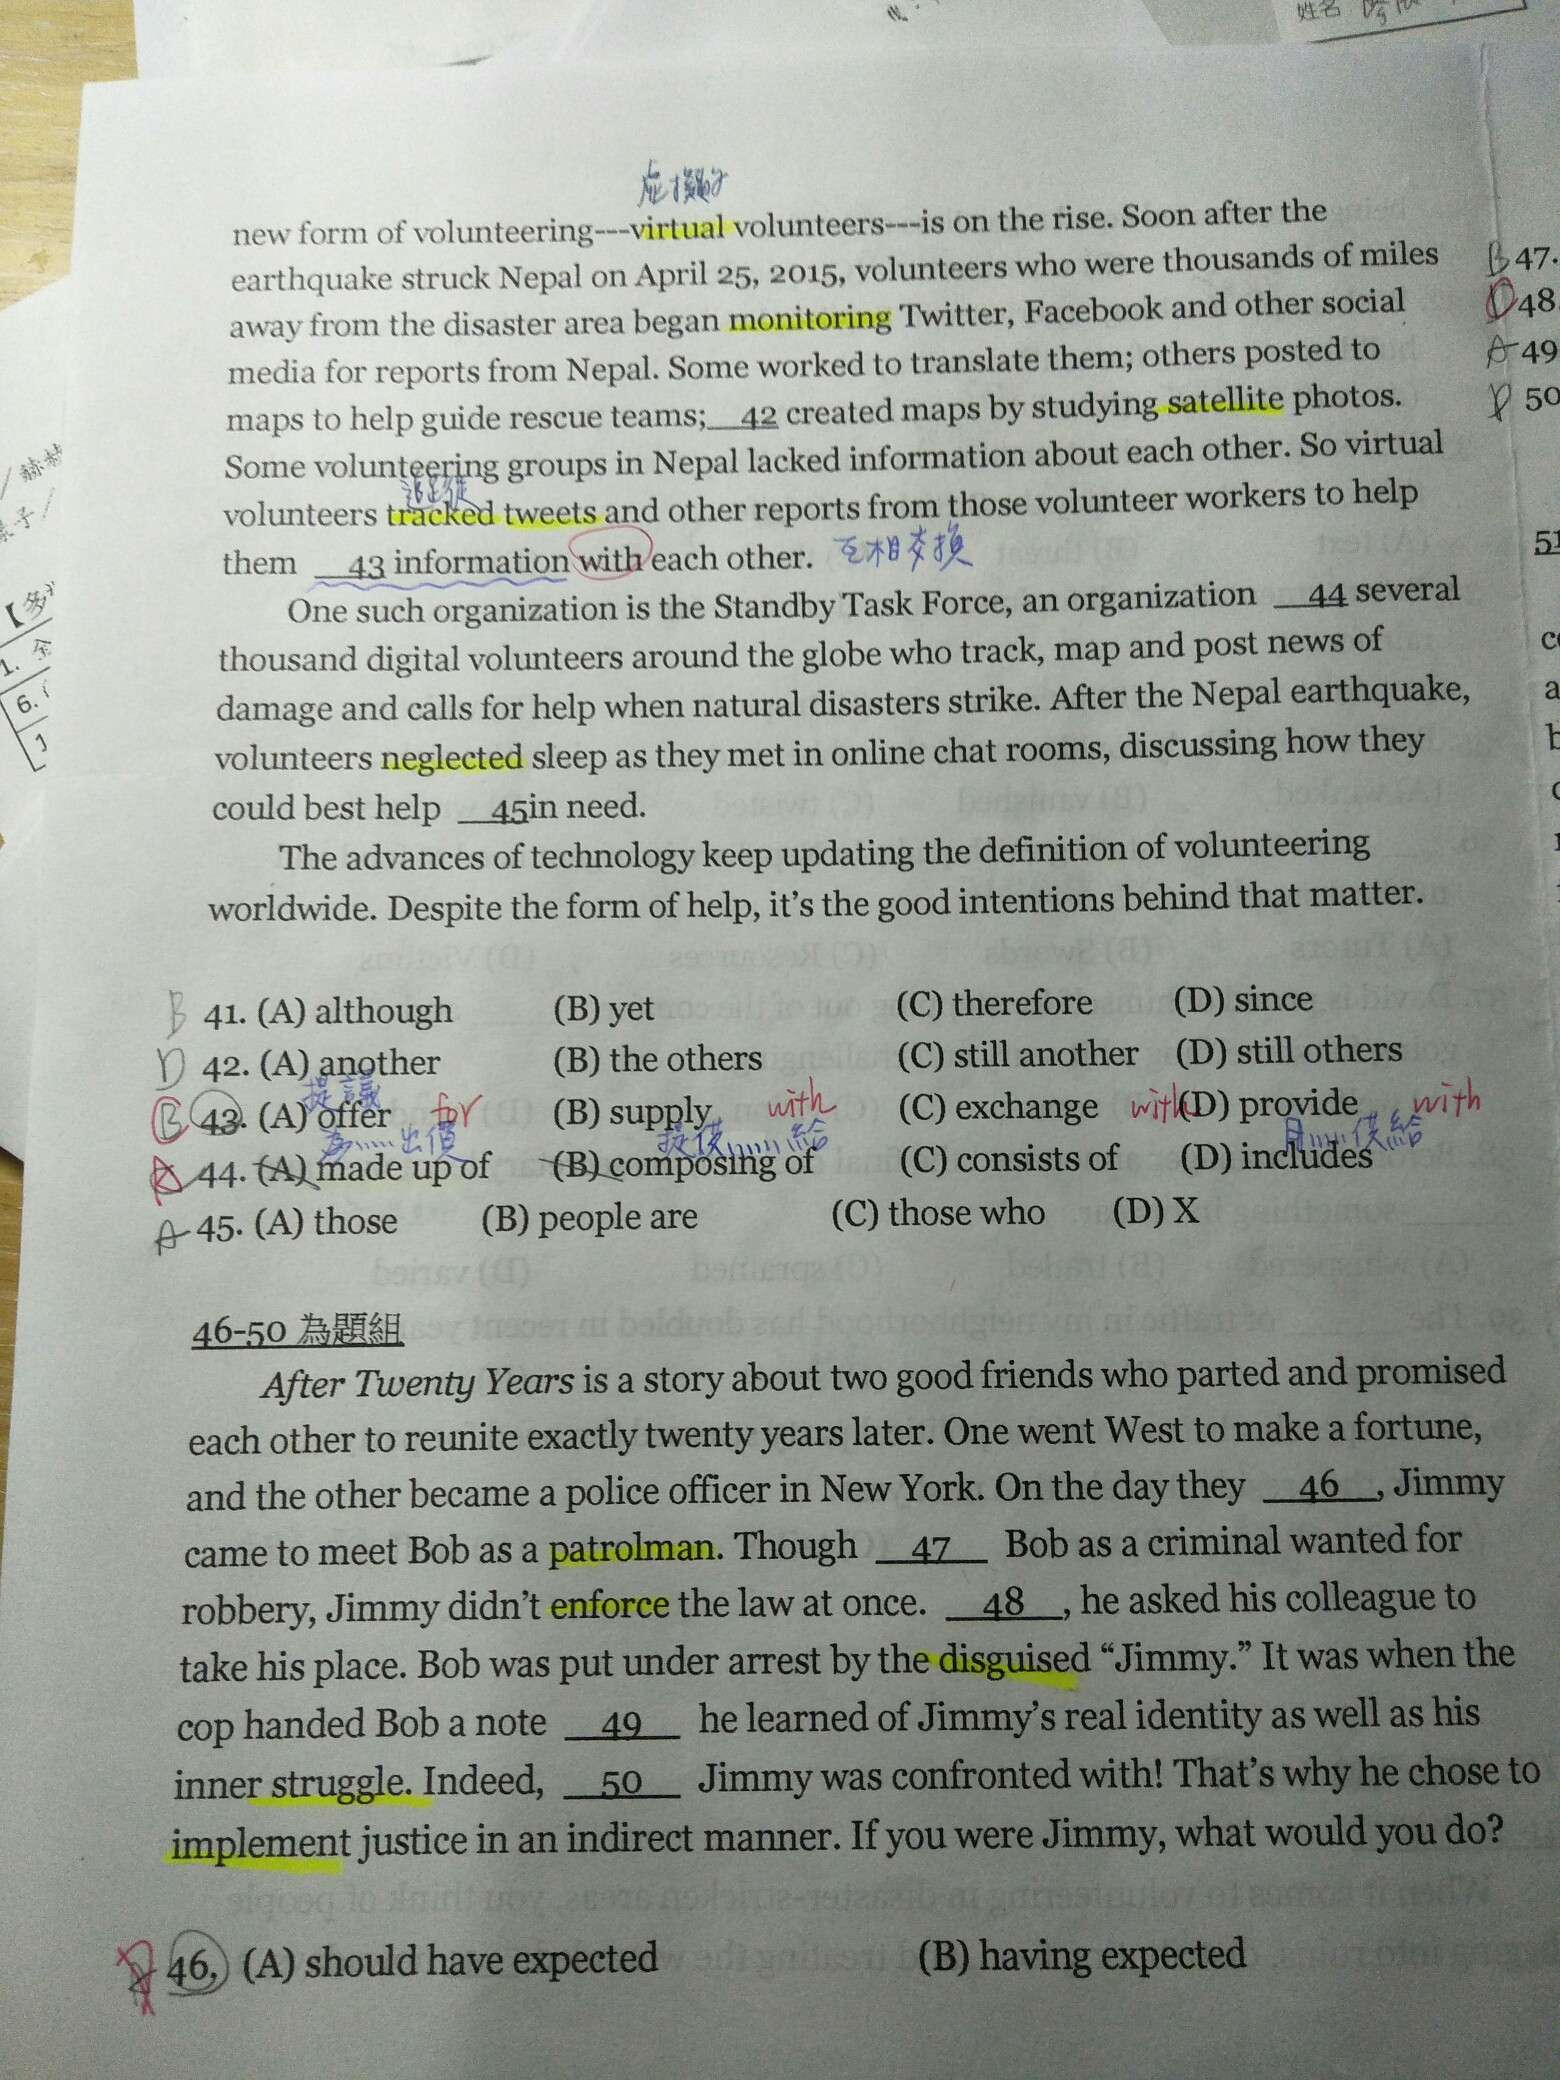 姓名
虛擬的
new form of volunteering---virtual volunteers---is on the rise. Soon after the
earthquake struck Nepal on April 25, 2015, volunteers who were thousands of miles
away from the disaster area began monitoring Twitter, Facebook and other social
media for reports from Nepal. Some worked to translate them; others posted to
maps to help guide rescue teams; 42 created maps by studying satellite photos.
Some volunteering groups in Nepal lacked information about each other. So virtual
volunteers tracked tweets and other reports from those volunteer workers to help
them 43 information with each other. 互相交換
One such organization is the Standby Task Force, an organization 44 several
thousand digital volunteers around the globe who track, map and post news of
damage and calls for help when natural disasters strike. After the Nepal earthquake,
volunteers neglected sleep as they met in online chat rooms, discussing how they
could best help 45in need.
The advances of technology keep updating the definition of volunteering
worldwide. Despite the form of help, it's the good intentions behind that matter.
B 41. (A) although (B) yet (C) therefore (D) since
D 42. (A) another (B) the others (C) still another (D) still others
提議
B 43. (A) offer for (B) supply with (C) exchange with (D) provide with
為......出價 提供......給 供給
A 44. (A) made up of (B) composing of (C) consists of (D) includes
A 45. (A) those (B) people are (C) those who (D) X
46-50 為題組
After Twenty Years is a story about two good friends who parted and promised
each other to reunite exactly twenty years later. One went West to make a fortune,
and the other became a police officer in New York. On the day they 46 , Jimmy
came to meet Bob as a patrolman. Though 47 Bob as a criminal wanted for
robbery, Jimmy didn't enforce the law at once. 48 , he asked his colleague to
take his place. Bob was put under arrest by the disguised “Jimmy.” It was when the
cop handed Bob a note 49 he learned of Jimmy's real identity as well as his
inner struggle. Indeed, 50 Jimmy was confronted with! That's why he chose to
implement justice in an indirect manner. If you were Jimmy, what would you do?
46, (A) should have expected (B) having expected
B 47.
D 48
A 49
D 50
51